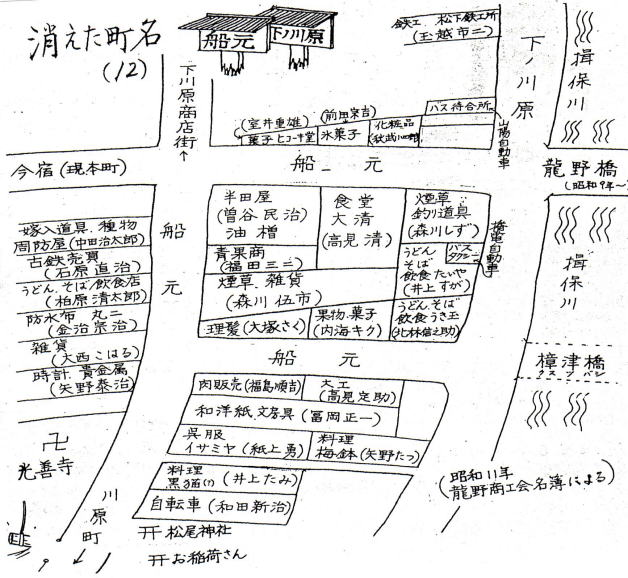 消えた町名
(12)
船元
下ノ川原
鉄工 松下鉄工所
(玉越市二)
下ノ川原
揖保川
下川原商店街→
(室井重雄)
菓子 ヒコーキ堂
(前田宗吉)
氷菓子
化粧品
バス待合所
山陽自動車
今宿(現本町)
船元
龍野橋
(昭和9年〜)
船元
嫁入道具、種物
周防屋(中田治太郎)
古鉄売買
(石原直治)
うどん、そば飲食店
(柏原清太郎)
防水布 丸二
(金治宗治)
雑貨
(大西こはる)
時計 貴金属
(矢野泰治)
半田屋
(曽谷民治)
油槽
青果商
(福田三二)
煙草、雑貨
(森川伍市)
理髪(大塚さく)
食堂
大清
(高見清)
果物、菓子
(内海キク)
煙草
釣り道具
(森川しず)
うどん
そば
飲食たいや
(井上すが)
バス
タクシー
うどん、そば
飲食うき玉
(北林信之助)
揖保川
船元
樟津橋
クスノバシ
肉販売(福島順吉)
大工
(高見定助)
和洋紙、文房具(冨岡正一)
呉服
イサミヤ(紙上勇)
料理
梅鉢(矢野たつ)
料理
黒猫(井上たみ)
自転車(和田新治)
卍
光善寺
川原町
松尾神社
お稲荷さん
(昭和11年
龍野商工会名簿による)